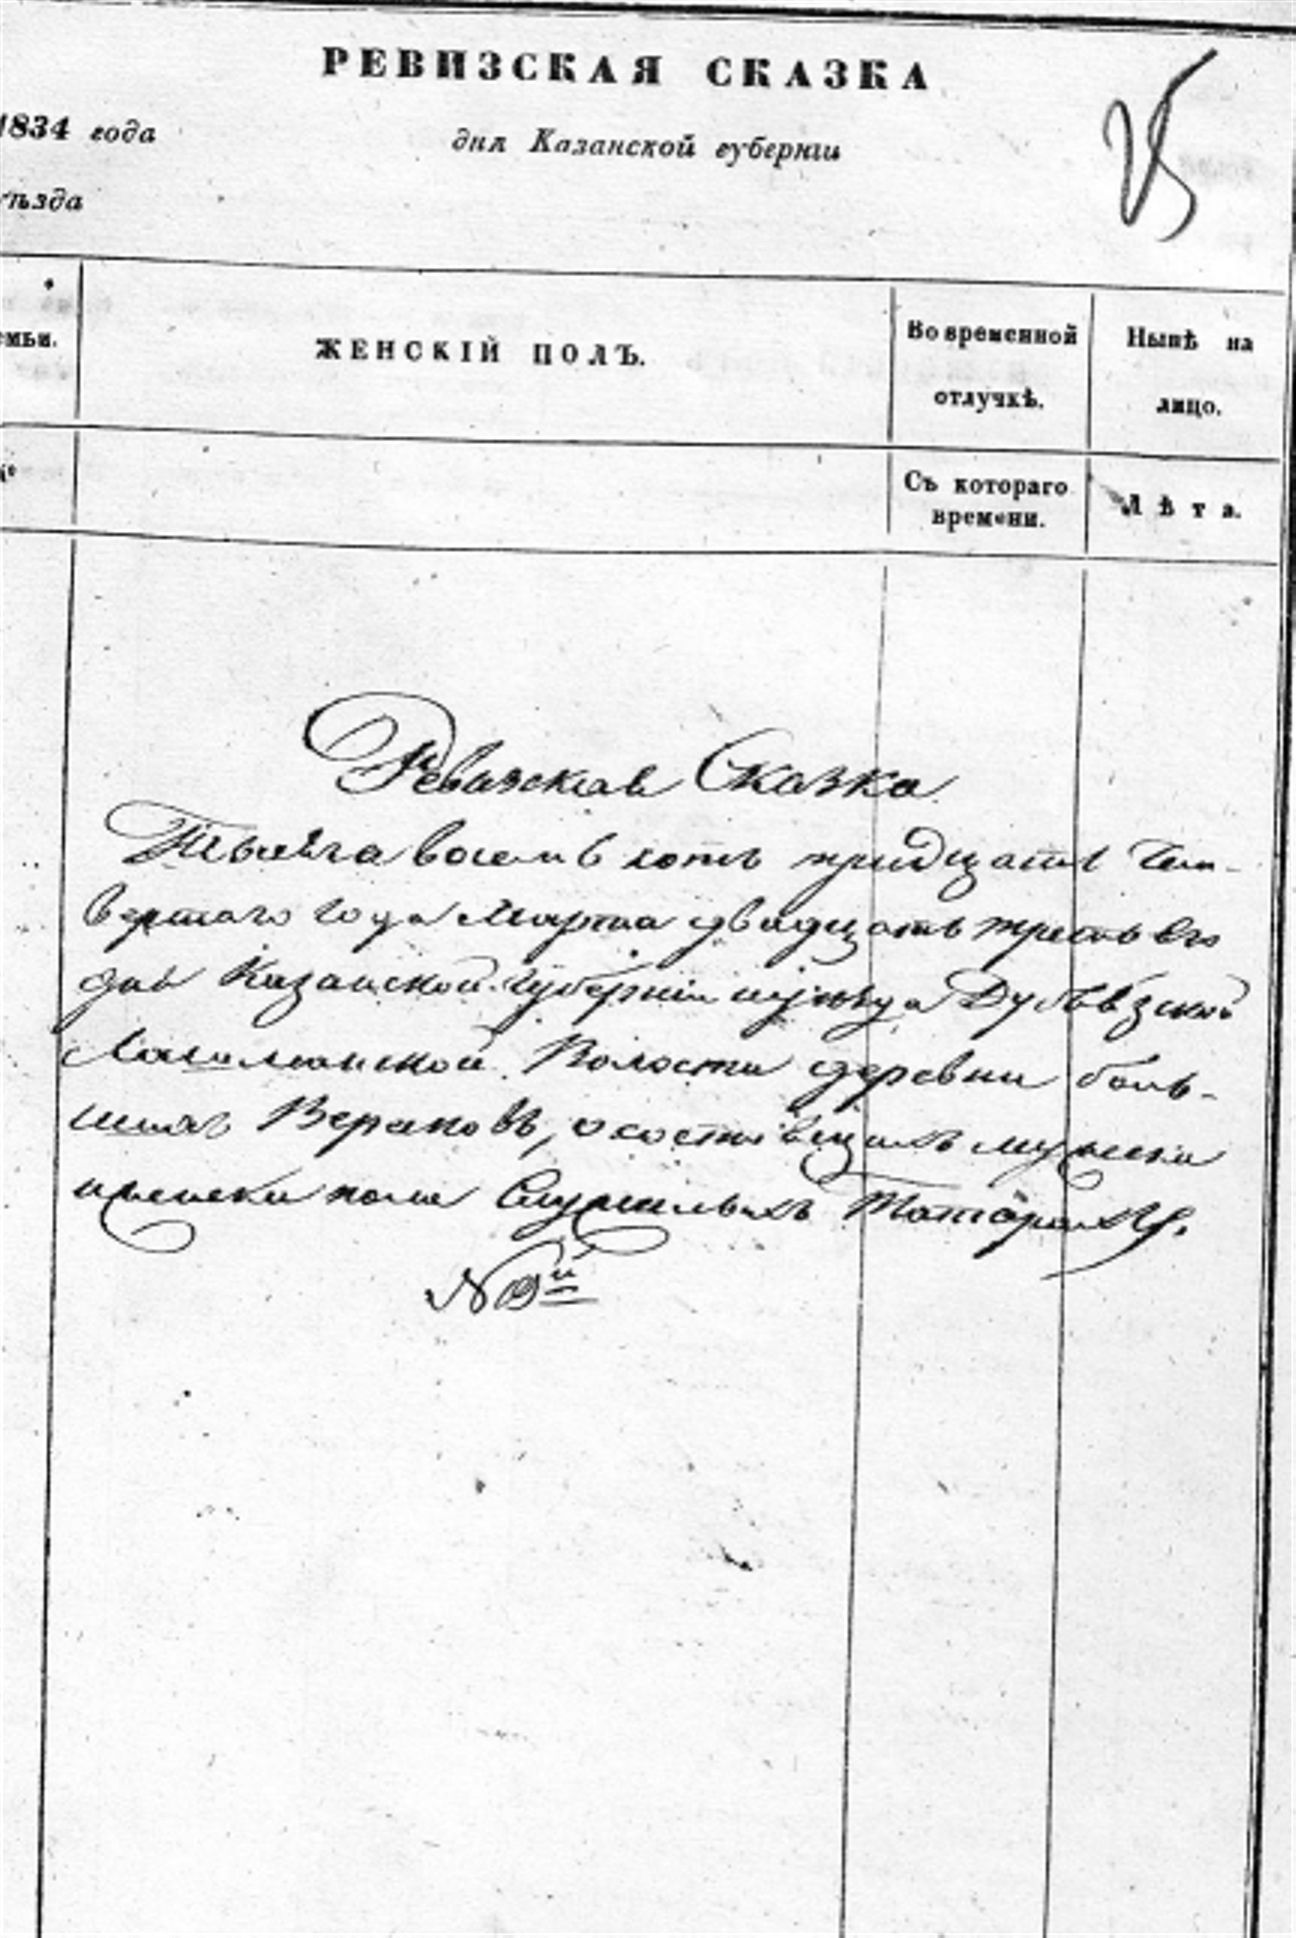 РЕВИЗСКАЯ СКАЗКА
25
1834 года
дня Казанской губерніи
уѣзда
емьи.
ЖЕНСКІЙ ПОЛЪ.
Во временной
отлучкѣ.
Нынѣ на
лицо.
Съ котораго
времени.
Лѣта.
Ревизская Сказка
Тысяча восемь сотъ тридцать Чет-
вертаго года Марта двадцать третьего
дня Казанской губерніи
Волости деревни боль-
шихъ о состоявщихъ мужска
и женска пола Служилыхъ Татарахъ.